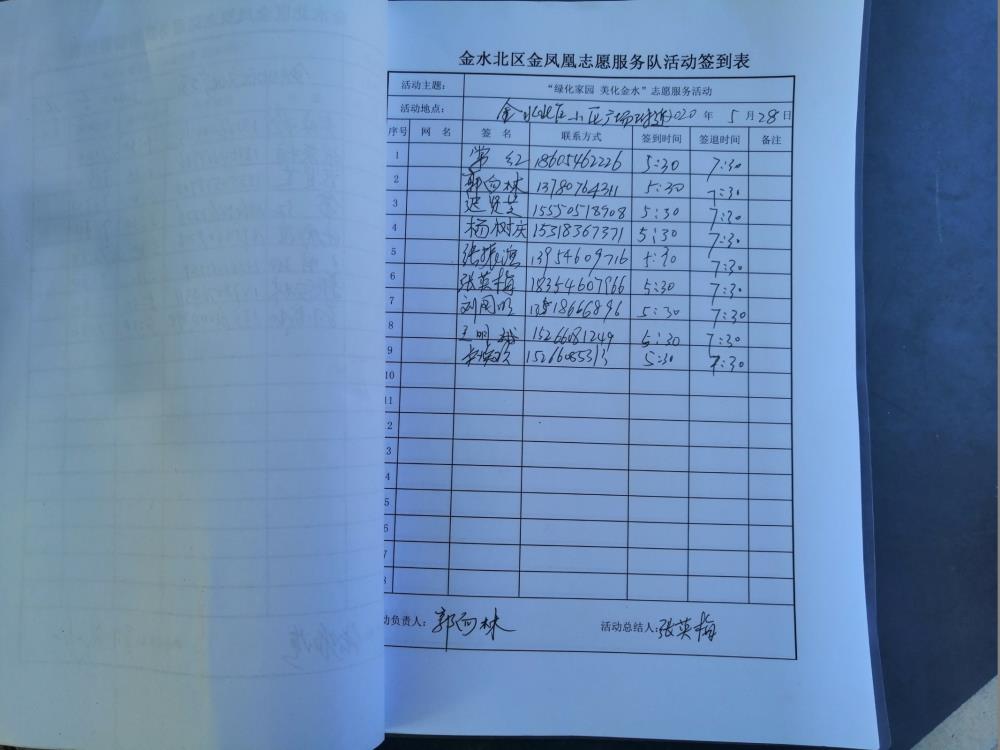 金水北区金凤凰志愿服务队活动签到表
活动主题： “绿化家园 美化金水”志愿服务活动
活动地点： 金水北区小区广场 2020 年 5 月 28 日
序号 网 名 签 名 联系方式 签到时间 签退时间 备注
1 常红 18605462226 5:30 7:30
2 郭向林 13780764311 5:30 7:30
3 贤芝 15550518908 5:30 7:30
4 杨树庆 15318367371 5:30 7:30
5 张振 13954609716 5:30 7:30
6 张英梅 18354607966 5:30 7:30
7 刘国明 18666896 5:30 7:30
8 王明 15266081249 5:30 7:30
9 5:30 7:30
10
11
2
3
4
5
6
7
8
动负责人： 郭向林 活动总结人： 张英梅